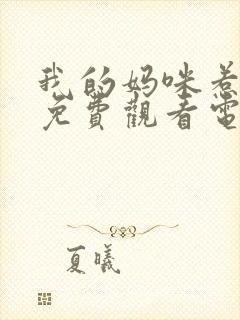 我的妈咪惹
免費觀看電
夏曦